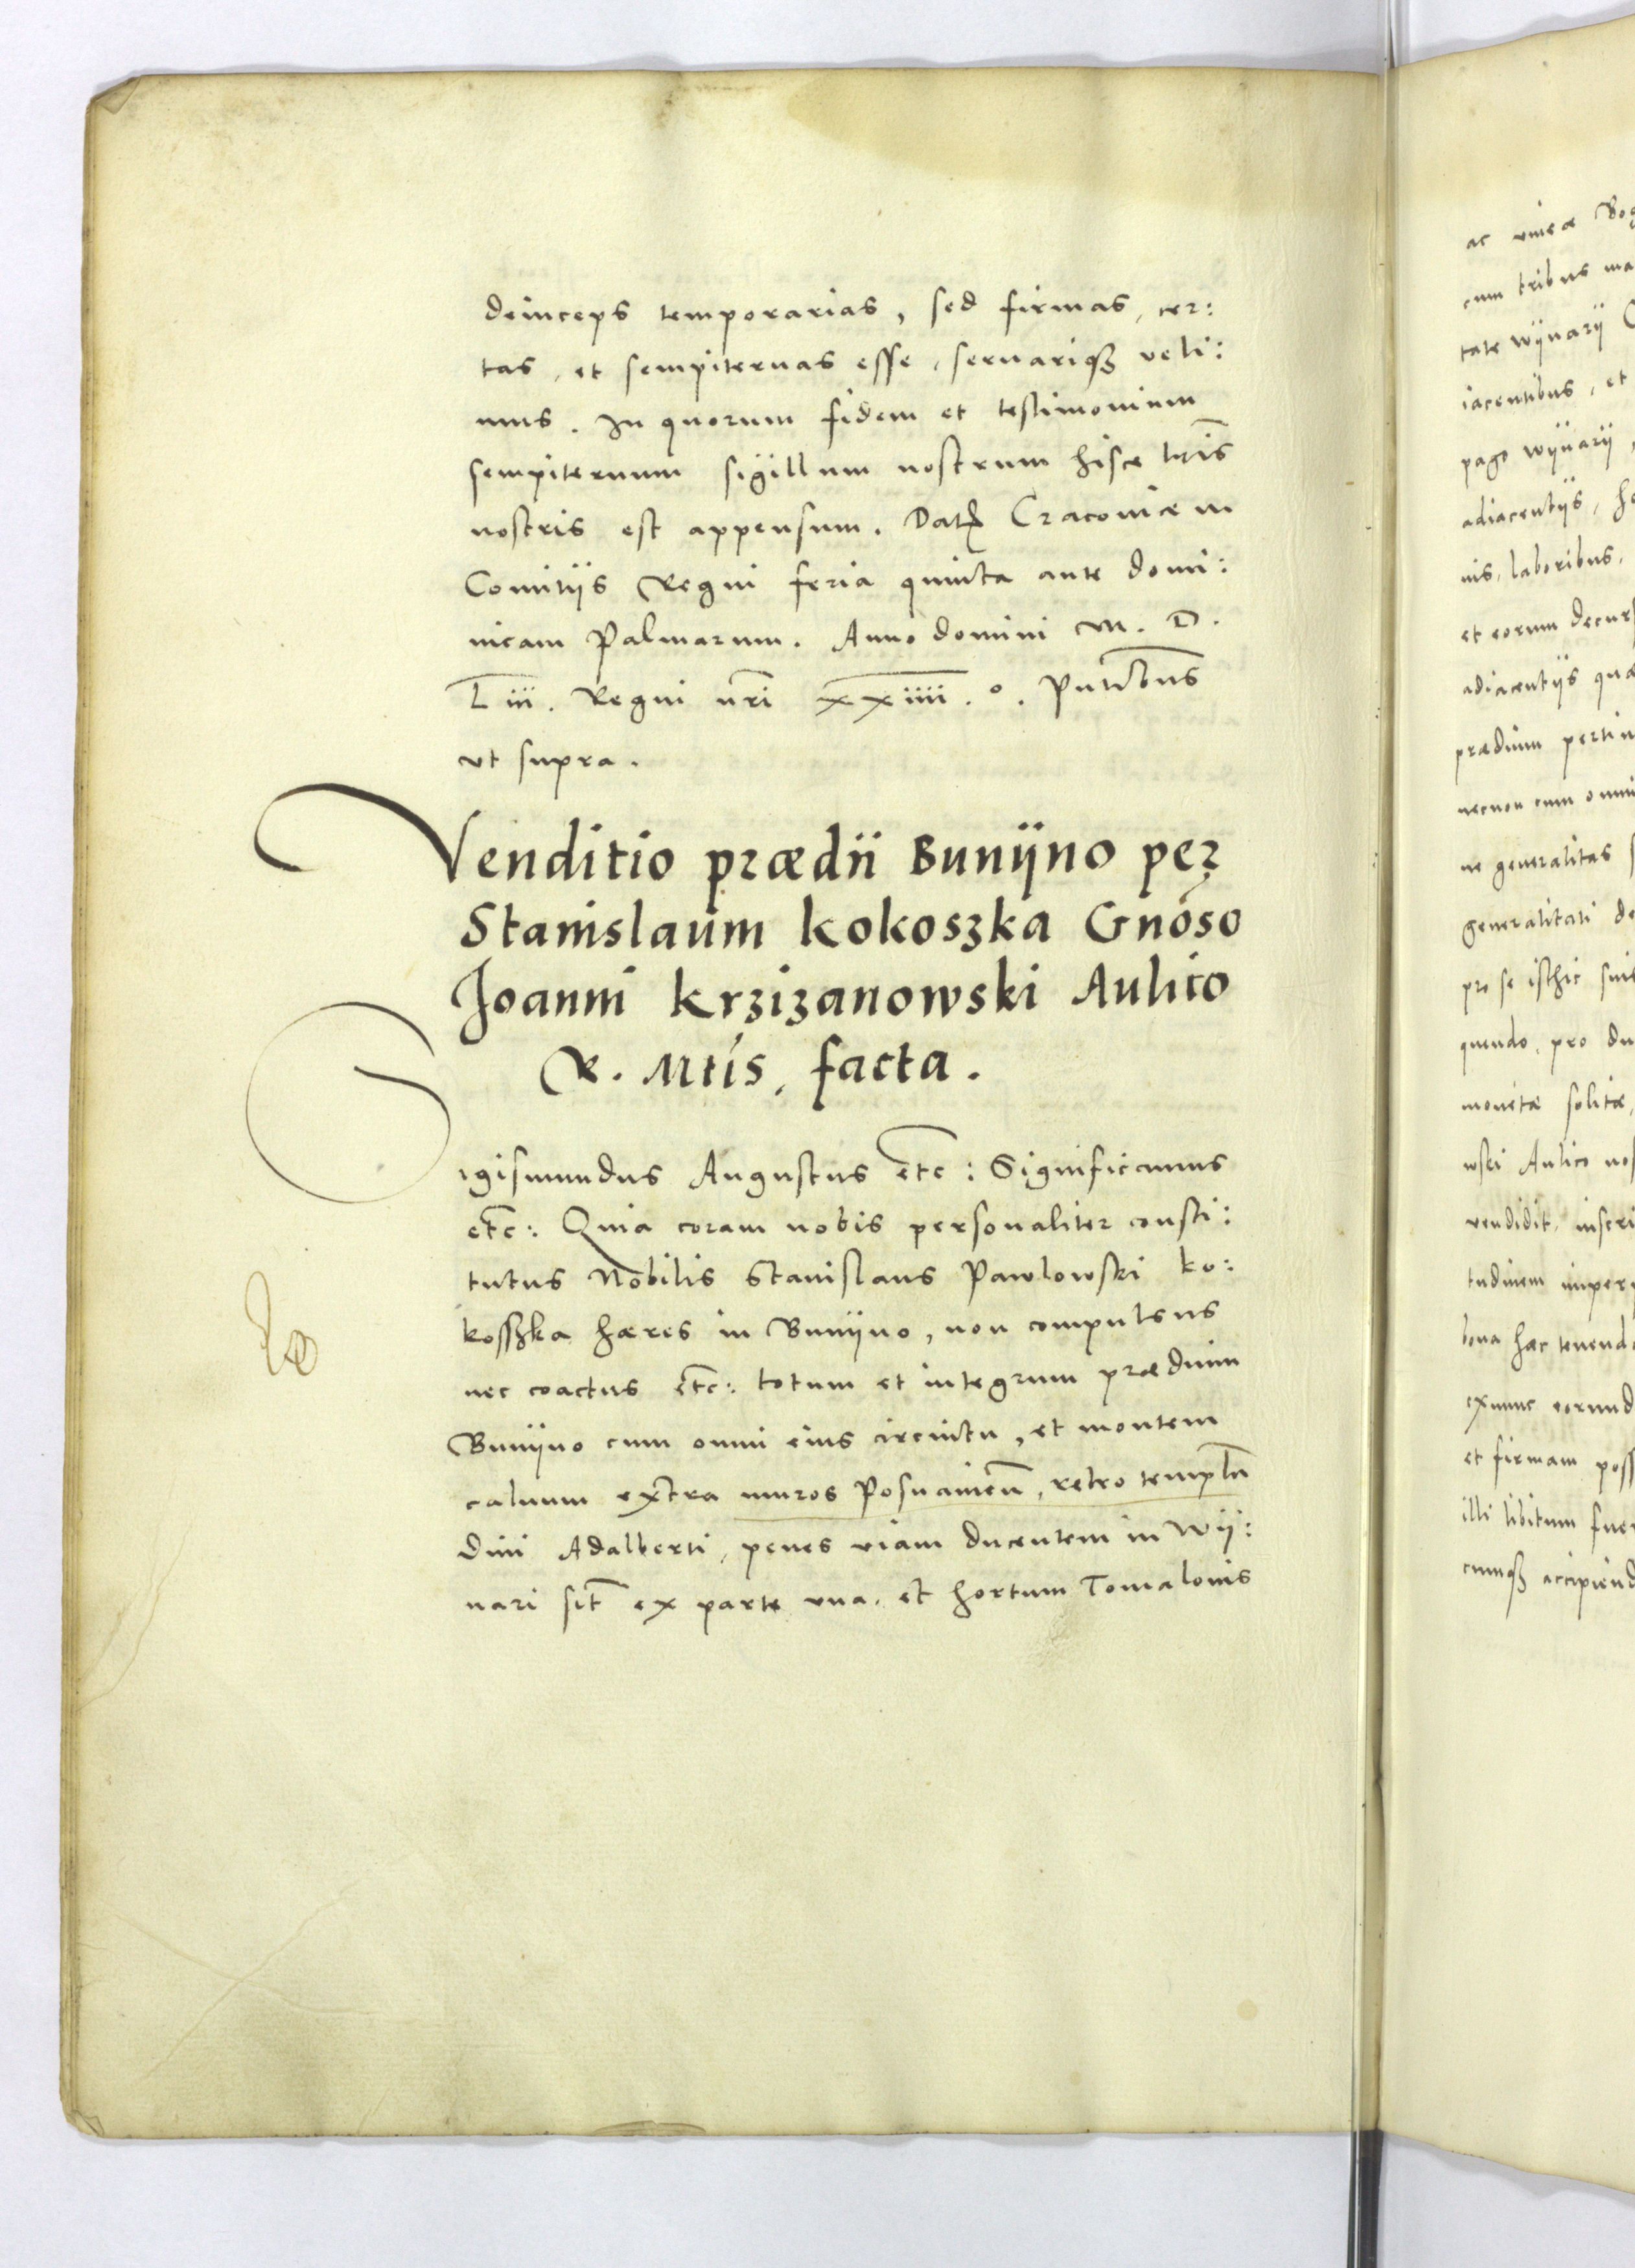 deinceps temporarias, sed firmas, cer:
tas, et sempiternas esse, seruariqȝ veli:
mus. In quorum fidem et testimonium
sempiternum sigillum nostrum hisce lr̄is
nostris est appensum. Datꝝ Cracoviæ in
Comitijs Regni feria quinta ante domi:
nicam Palmarum. Anno domini M. D.
L iii. Regni nr̄i xxiiii.º. Pn̄tibus
vt supra.
Venditio prædii Buniino per
Stanislaum Kokoszka Gnōso
Joanni Krzizanowski Aulico
R. Mtis, facta.
Sigismundus Augustus etc̄: Significamus
etc̄: Quia coram nobis personaliter consti:
tutus Nobilis Stanislaus Pawlowski Ko:
kosszka hæres in Buniino, non compulsus
nec coactus etc̄: totum et integrum prædium
Buniino cum omni eius circuitu, et montem
caluum extra muros Posnanien̄, retro templū
Diui Adalberti, penes viam ducentem in Wij:
nari sit̄ ex parte vna. et hortum Tomalouis
ac vineæ
cum tribus
tate Wijnarij
iacentibus, et
pago Wijnarij,
adiacentijs,
nis, laboribus,
et eorum
adiacentijs
prædium
necnon cum
ne generalitas
generalitati
pro se isthic
quendo, pro
monetæ solitæ,
wski Aulico
vendidit,
tudinem
bona hæc
exnunc
et firmam
illi libitum
cumqȝ